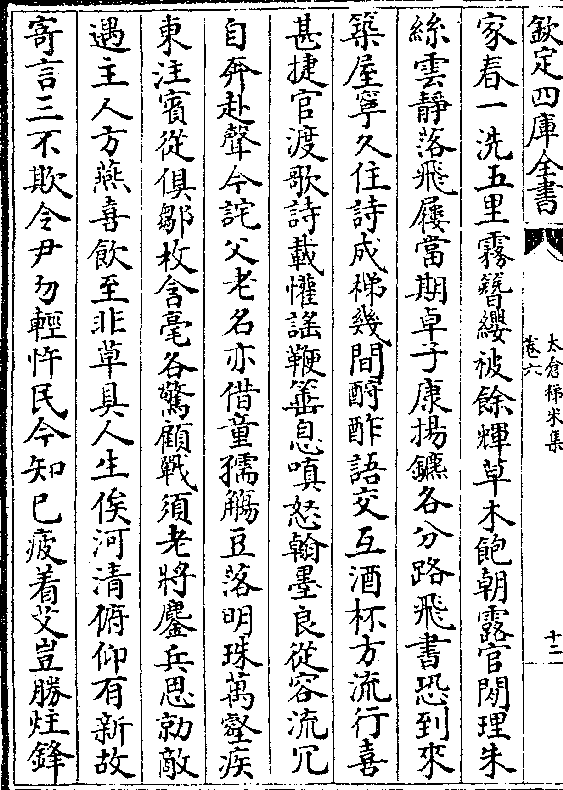 欽定四庫全書
太倉稊米集
卷六
十二
家春一洗五里霧簪纓被餘輝草木飽朝露官閒理朱
絲雲靜落飛屐當期卓子康揚鑣各分路飛書恐到來
築屋寧久住詩成梯幾間酧酢語交互酒杯方流行喜
甚捷官渡歌詩載懽謡鞭箠息嗔怒翰墨良從容流冗
自奔赴聲今詫父老名亦借童孺觴豆落明珠萬壑疾
東注賓從俱鄒枚含毫各驚顧戰須老將鏖兵思勍敵
遇主人方燕喜飲至非草具人生俟河清俯仰有新故
寄言三不欺令尹勿輕忤民今知已疲着艾豈勝炷鋒